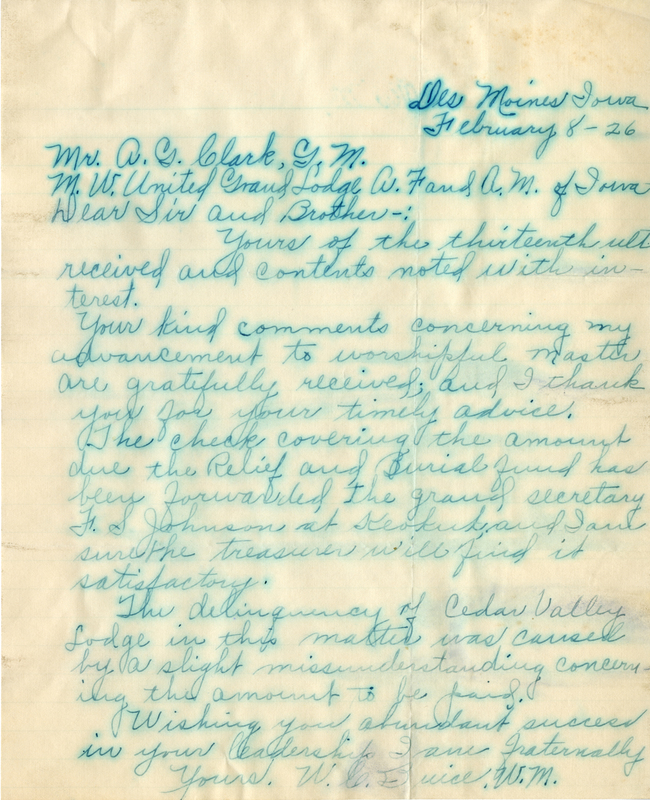 Des Moines Iowa
February 8-26
Mr. A. G. Clark, G. M.
M. W. United Grand Lodge A. F and A. M. of Iowa
Dear Sir and Brother-:
Yours of the thirteenth ult
received and contents noted with in-
terest.
Your kind comments concerning my
advancement to worshipful master
are gratefully received; and I thank
you for your timely advice.
The check covering the amount
due the Relief and Burial fund has
been forwarded the grand secretary
F. S Johnson at Keokuk, and I am
sure the treasurer will find it
satisfactory.
The delinquency of Cedar Valley
Lodge in this matter was caused
by a slight missunderstanding concern-
ing the amount to be paid.
Wishing you abundant success
in your leadership I am Fraternally
Yours. W. W.M.